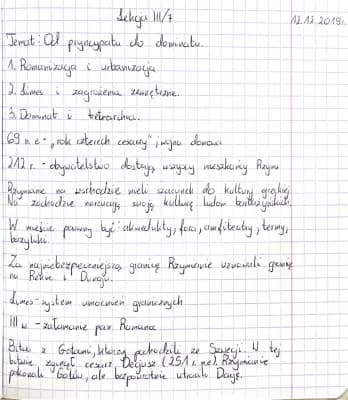 Lekcja III/7
12.12.2019r.
Temat: Od pryncypatu do dominatu.
1. Romanizacja i urbanizacja
2. Limes i zagrożenia zewnętrzne.
3. Dominat i tetrarchia.
69 n.e - „rok czterech cesarzy", wojna domowa
212 r. - obywatelstwo dostają wszyscy mieszkańcy Rzymu
Rzymianie na wschodzie mieli szacunek do kultury greckiej
Na zachodzie narzucają swoją kulturę ludom barbarzyńskim.
W mieście powinny być: akwedukty, fora, amfiteatry, termy,
bazyliki.
Za najniebezpieczniejszą granicę Rzymianie uznawali granicę
na Renie i Dunaju.
Limes - system umocnień granicznych
III w. - załamanie pax Romana
Bitwa z Gotami, którzy pochodzili ze Szwecji. W tej
bitwie zginął cesarz Decjusz (251 r. n.e). Rzymianie
pokonali Gotów, ale bezpowrotnie utracili Dację.